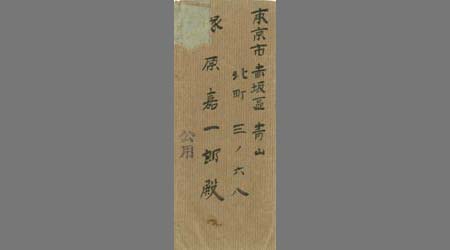 東京市赤坂區青山
北町三ノ六八
原嘉一郎殿
公用